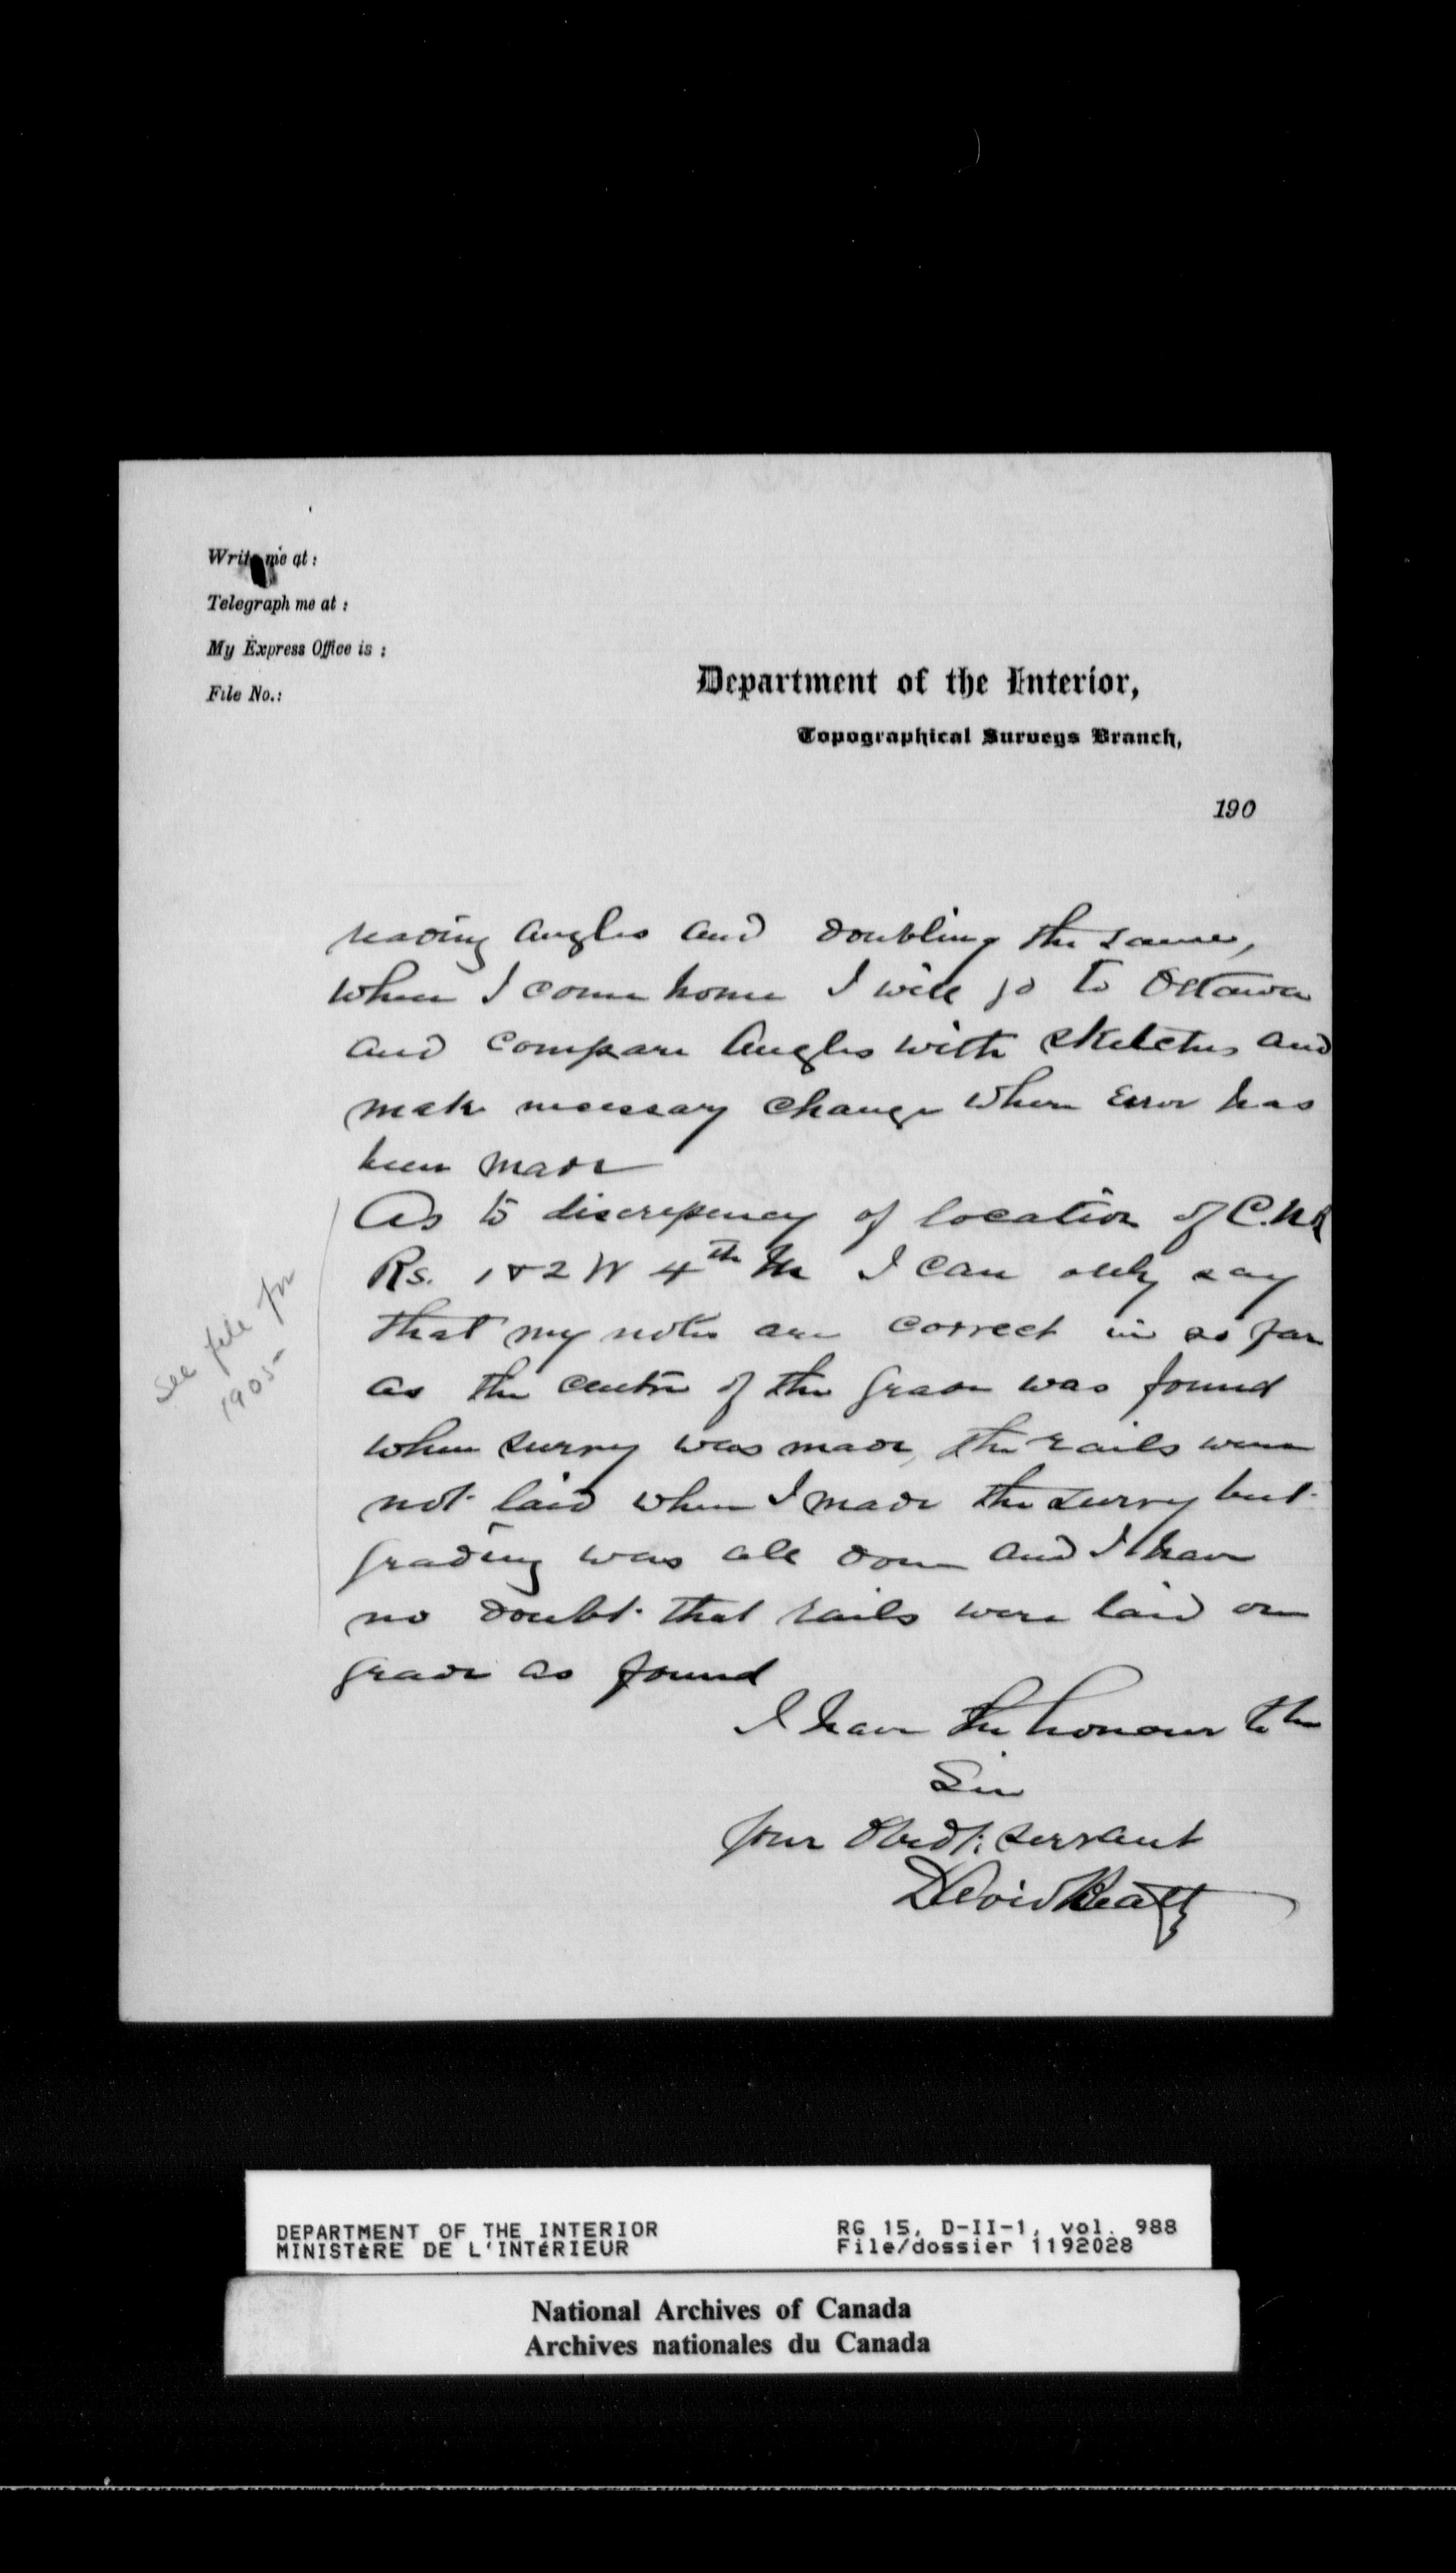 Write me at :
Telegraph me at :
My Express Office is :
File No.:
Department of the Interior,
Topographical Surveys Branch,
190
reading angles and doubling the same,
when I come home I will go to Ottawa
and compare Angles with sketches and
make necessary change where Error has
been made
As to discrepency of location of C.N.R
Rs. 1 & 2 W 4th M I can only say
that my notes are correct in so far
as the centre of the grade was found
when survey was made, the rails were
not laid when I made the survey but
grading was all done and I have
no doubt that rails were laid on
grade as found
See file for
1905
I have the honour to be
Sir
Your Obedt. servant
David Beatty
DEPARTMENT OF THE INTERIOR
MINISTÈRE DE L'INTÉRIEUR
RG 15, D-II-1, vol. 988
File/dossier 1192028
National Archives of Canada
Archives nationales du Canada